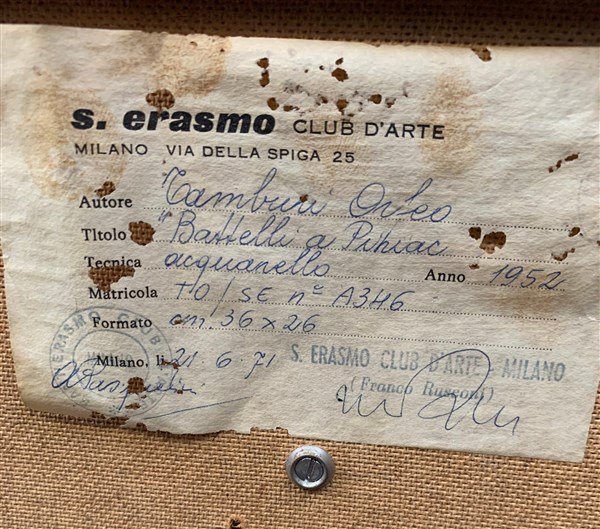 s. erasmo CLUB D'ARTE
MILANO VIA DELLA SPIGA 25
Autore Tamburi Orfeo
Titolo "Battelli a Piriac
Tecnica acquarello Anno 1952
Matricola TO/SE nº A346
Formato cm. 36 x 26
Milano, li 21 6. 71
S. ERASMO CLUB D'ARTE - MILANO
(Franco Rusconi)
ERASMO CLUB